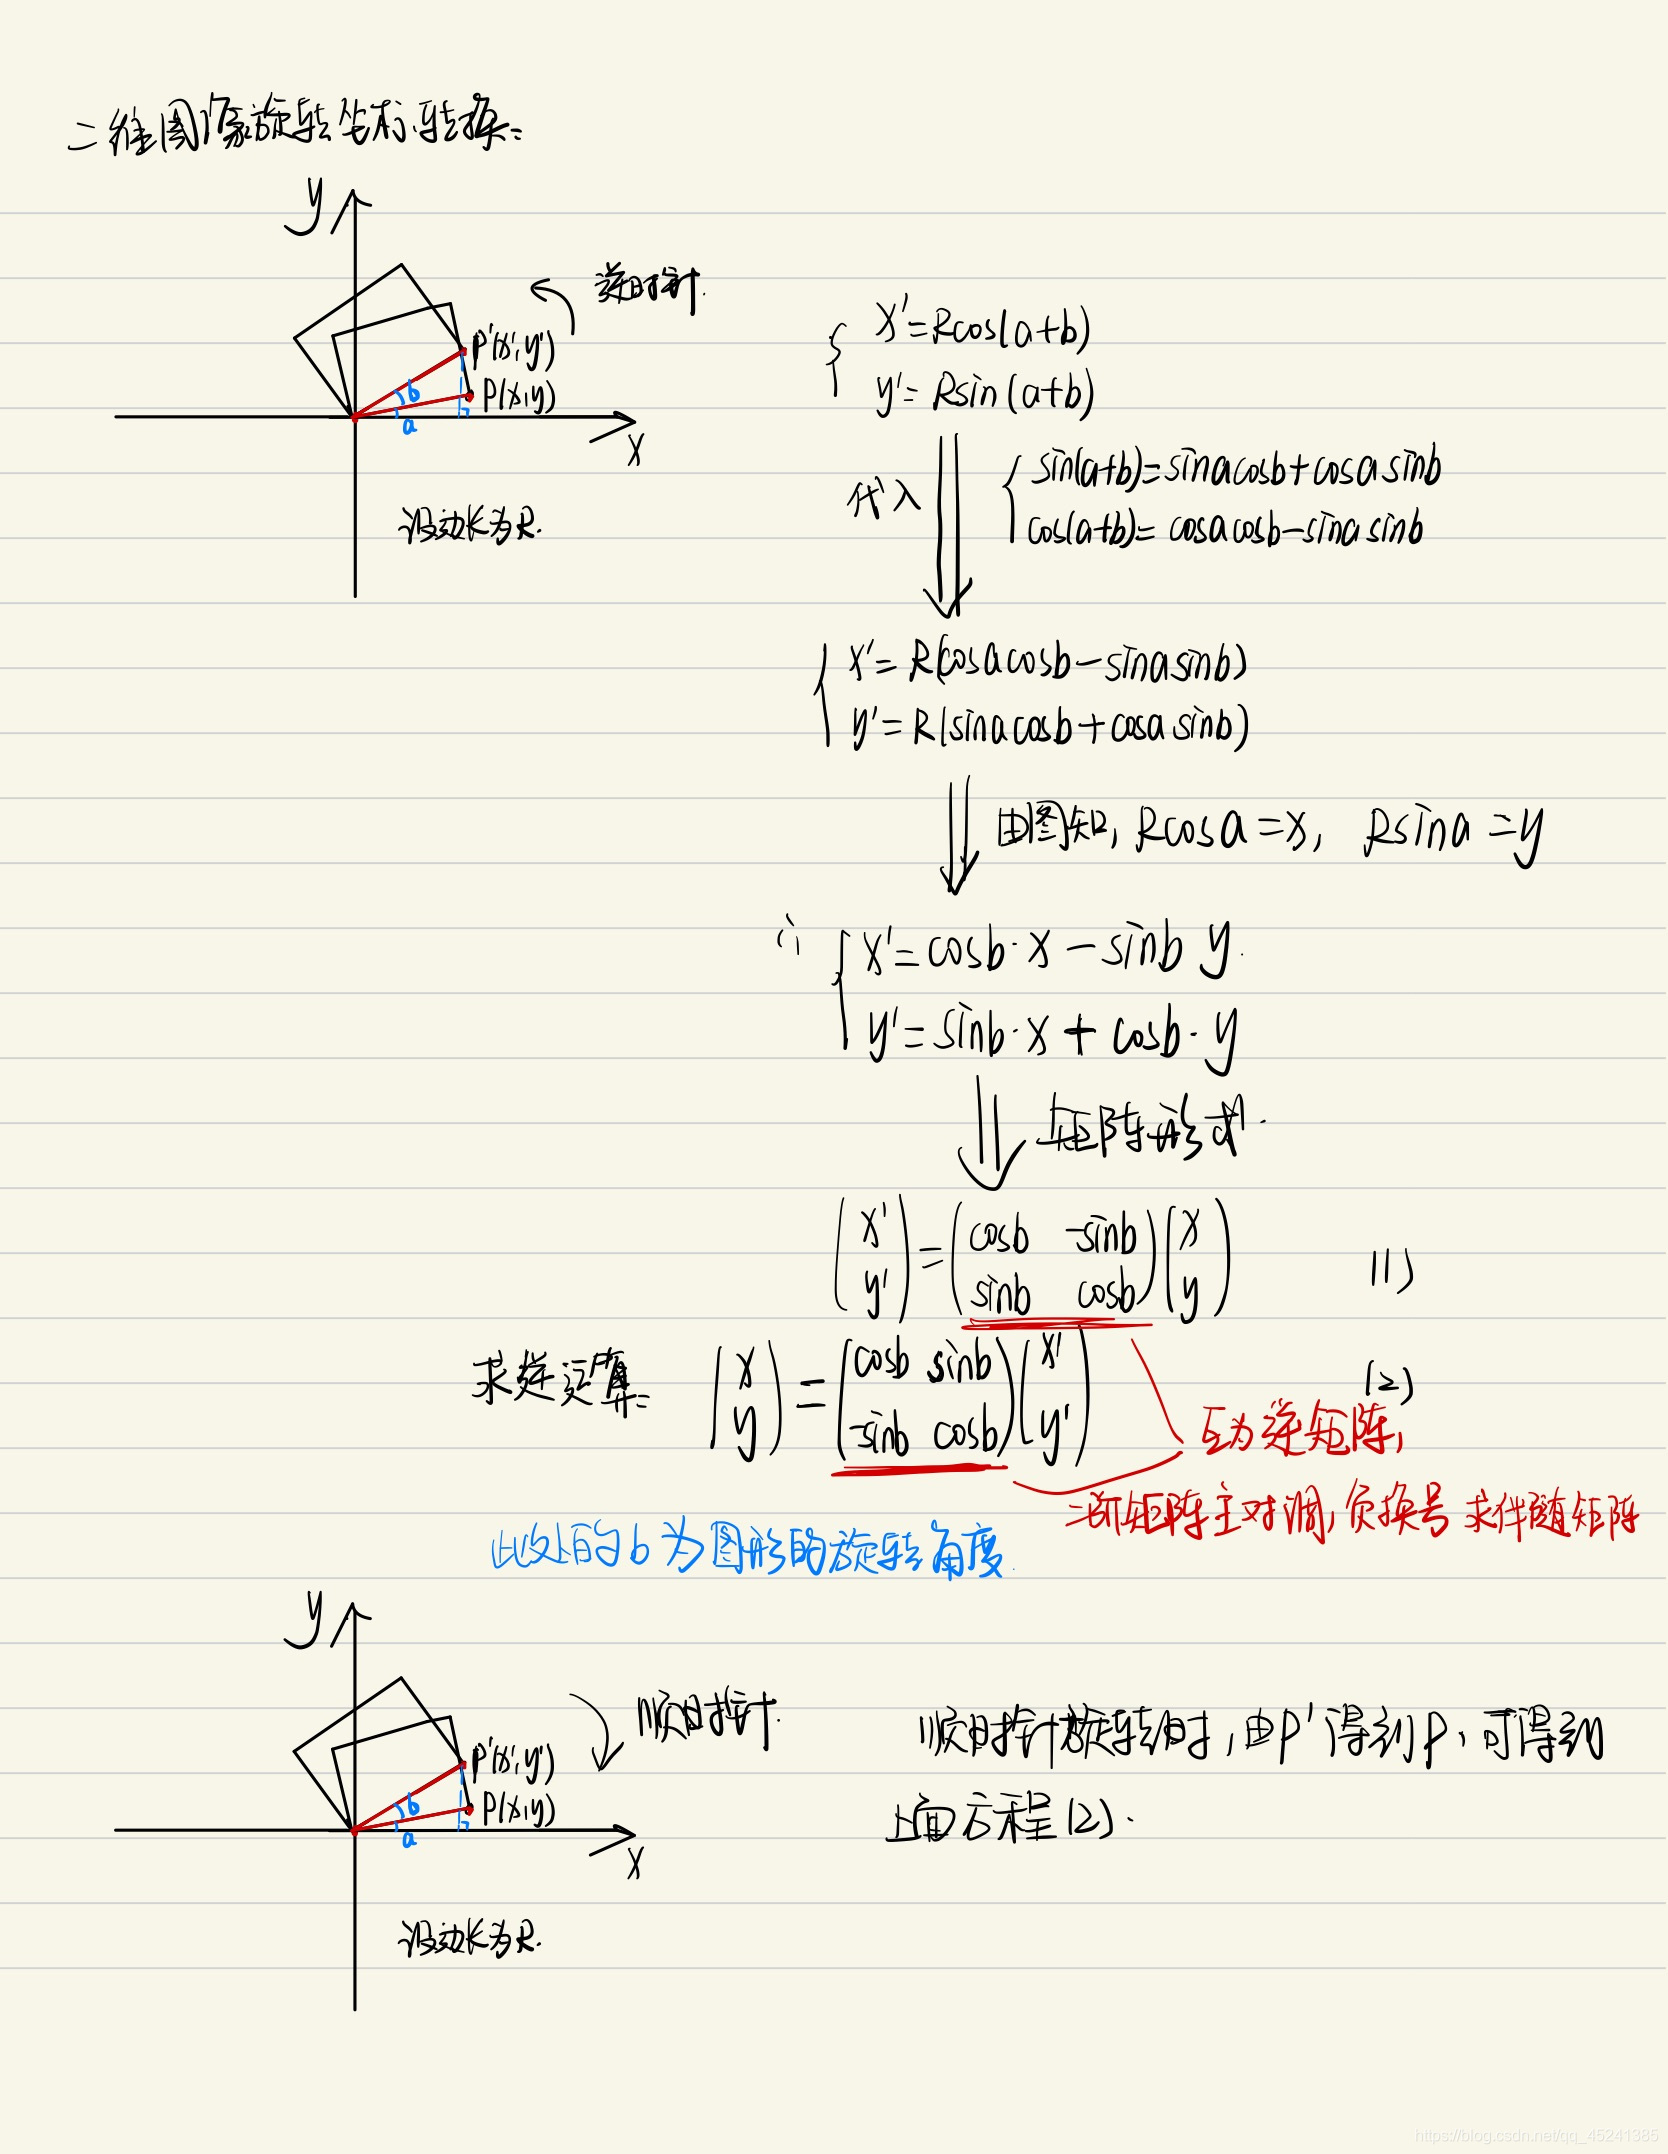 二维图像旋转坐标转换:
y
逆时针.
P'(x',y')
P(x,y)
b
a
x
设边长为R.
x'=Rcos(a+b)
y'=Rsin(a+b)
代入
sin(a+b)=sinacosb+cosasinb
cos(a+b)=cosacosb-sinasinb
x'=R(cosacosb-sinasinb)
y'=R(sinacosb+cosasinb)
由图知, Rcosa=x, Rsina=y
∴ x'=cosb·x-sinb y.
y'=sinb·x+cosb·y
矩阵形式.
(x' y')=(cosb -sinb
sinb cosb)(x y) (1)
求逆运算: (x y)=(cosb sinb
-sinb cosb)(x' y') (2)
互为逆矩阵,
二阶矩阵主对调,负换号 求伴随矩阵
此处的b为图形的旋转角度.
y
顺时针.
P'(x',y')
P(x,y)
b
a
x
设边长为R.
顺时针旋转时,由P'得到P,可得到
上面方程(2).
https://blog.csdn.net/qq_45241385